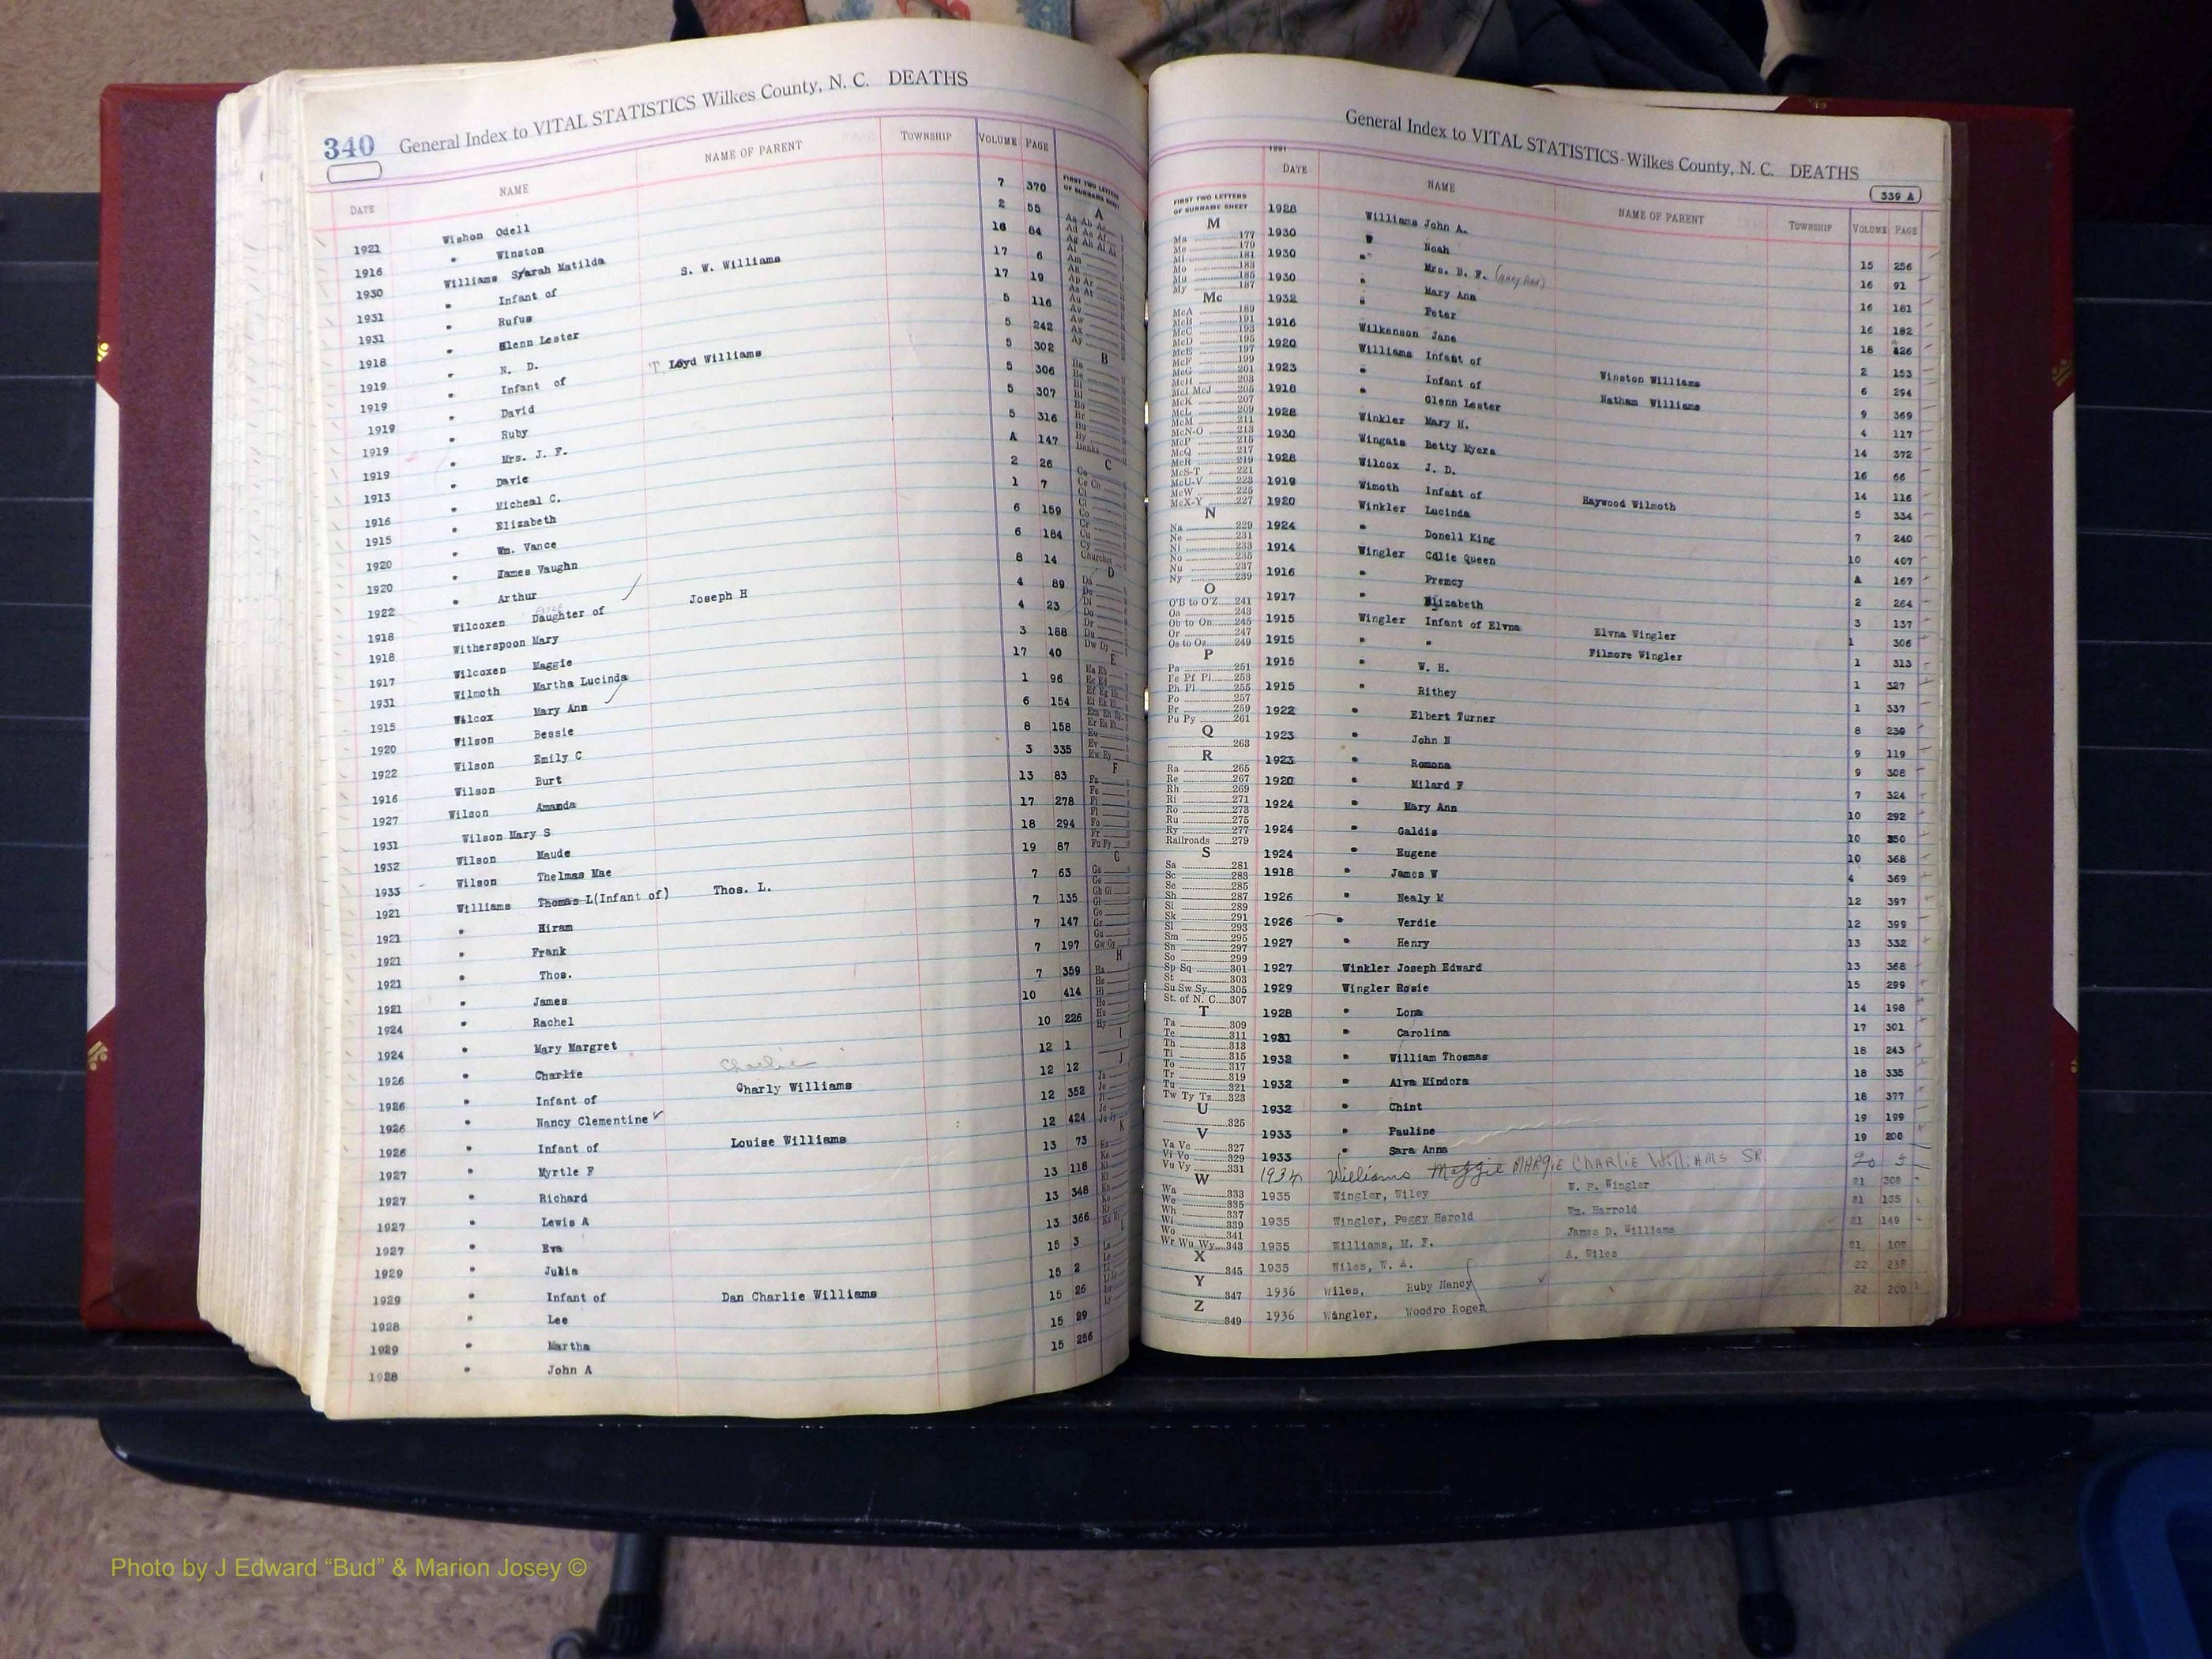 340 General Index to VITAL STATISTICS Wilkes County, N. C. DEATHS
DATE NAME NAME OF PARENT TOWNSHIP VOLUME PAGE
1921 Wishon Odell 7 370
1916 " Winston 2 55
1930 Williams Sarah Matilda 16 84
1931 " Infant of S. W. Williams 17 6
1931 " Rufus 17 19
1918 " Glenn Lester 5 116
1919 " N. D. 5 242
1919 " Infant of T. Loyd Williams 5 302
1919 " David 5 306
1919 " Ruby 5 307
1919 " Mrs. J. F. 5 316
1913 " Davie A 147
1916 " Micheal C. 2 26
1915 " Elizabeth 1 7
1920 " Wm. Vance 6 159
1920 " James Vaughn 6 184
1922 " Arthur 8 14
1918 Wilcoxen Daughter of Joseph H 4 89
1918 Witherspoon Mary 4 23
1917 Wilcoxen Maggie 3 188
1931 Wilmoth Martha Lucinda 17 40
1915 Wilcox Mary Ann 1 96
1920 Wilson Bessie 6 154
1922 Wilson Emily C 8 158
1916 Wilson Burt 3 335
1927 Wilson Amanda 13 83
1931 Wilson Mary S 17 278
1932 Wilson Maude 18 294
1933 Wilson Thelmas Mae 19 87
1921 Williams Thomas L(Infant of) Thos. L. 7 63
1921 " Hiram 7 135
1921 " Frank 7 147
1921 " Thos. 7 197
1921 " James 7 359
1924 " Rachel 10 414
1924 " Mary Margret 10 226
1926 " Charlie Charlie 12 1
1926 " Infant of Charly Williams 12 12
1926 " Nancy Clementine 12 352
1926 " Infant of Louise Williams 12 424
1927 " Myrtle F 13 73
1927 " Richard 13 118
1927 " Lewis A 13 348
1927 " Eva 13 366
1929 " Julia 15 3
1929 " Infant of Dan Charlie Williams 15 2
1928 " Lee 15 26
1929 " Martha 15 29
1928 " John A 15 256
FIRST TWO LETTERS
OF SURNAME SHEET
A
B
C
D
E
F
G
H
I
J
K
General Index to VITAL STATISTICS-Wilkes County, N. C. DEATHS
339 A
FIRST TWO LETTERS
OF SURNAME SHEET
M
Ma 177
Me 179
Mi 181
Mo 183
Mu 185
My 187
Mc
McA 189
McB 191
McC 193
McD 195
McE 197
McF 199
McG 201
McH 203
McI McJ 205
McK 207
McL 209
McM 211
McN-O 213
McP 215
McQ 217
McR 219
McS-T 221
McU-V 223
McW 225
McX-Y 227
N
Na 229
Ne 231
Ni 233
No 235
Nu 237
Ny 239
O
O'B to O'Z 241
Oa 243
Ob to On 245
Or 247
Os to Oz 249
P
Pa 251
Pe Pf Pi 253
Ph Pl 255
Po 257
Pr 259
Pu Py 261
Q
263
R
Ra 265
Re 267
Rh 269
Ri 271
Ro 273
Ru 275
Ry 277
Railroads 279
S
Sa 281
Sc 283
Se 285
Sh 287
Si 289
Sk 291
Sl 293
Sm 295
Sn 297
So 299
Sp Sq 301
St 303
Su Sw Sy 305
St. of N. C. 307
T
Ta 309
Te 311
Th 313
Ti 315
To 317
Tr 319
Tu 321
Tw Ty Tz 323
U
325
V
Va Ve 327
Vi Vo 329
Vu Vy 331
W
Wa 333
We 335
Wh 337
Wi 339
Wo 341
Wr Wu Wy 343
X
345
Y
347
Z
349
DATE NAME NAME OF PARENT TOWNSHIP VOLUME PAGE
1928 Williams John A. 15 256
1930 " Noah 16 91
1930 " Mrs. B. F. 16 181
1930 " Mary Ann 16 182
1932 " Peter 18
1916 Wilkenson Jane 2 153
1920 Williams Infant of Winston Williams 6 294
1923 " Infant of Natham Williams 9 369
1918 " Glenn Lester 4 117
1928 Winkler Mary H. 14 372
1930 Wingate Betty Myers 16 66
1928 Wilcox J. D. 14 116
1919 Wimoth Infant of Haywood Wilmoth 5 334
1920 Winkler Lucinda 7 240
1924 " Donell King 10 407
1914 Wingler Callie Queen A 167
1916 " Premcy 2 264
1917 " Elizabeth 3 137
1915 Wingler Infant of Elvna Elvna Wingler 1 306
1915 " " Filmore Wingler 1 313
1915 " W. H. 1 327
1915 " Rithey 1 337
1922 " Elbert Turner 8 239
1923 " John N 9 119
1923 " Romona 9 308
1920 " Milard F 7 324
1924 " Mary Ann 10 292
1924 " Galdis 10 350
1924 " Eugene 10 368
1918 " James W 4 369
1926 " Nealy M 12 397
1926 " Verdie 12 399
1927 " Henry 13 332
1927 Winkler Joseph Edward 13 368
1929 Wingler Rosie 15 299
1928 " Lona 14 198
1931 " Carolina 17 301
1932 " William Thosmas 18 243
1932 " Alva Mindora 18 335
1932 " Chint 18 377
1933 " Pauline 19 199
1933 " Sara Anna 19 200
1934 Williams Maggie MARGIE CHARLIE WILLIAMS SR 20 5
1935 Wingler, Wiley W. P. Wingler 21 308
1935 Wingler, Peggy Harold Wm. Harrold 21 135
1935 Williams, M. F. James D. Williams 21 149
1935 Wiles, W. A. A. Wiles 21 109
1936 Wiles, Ruby Nancy 22 238
1936 Wingler, Woodro Roger 22 200
Photo by J Edward “Bud” & Marion Josey ©